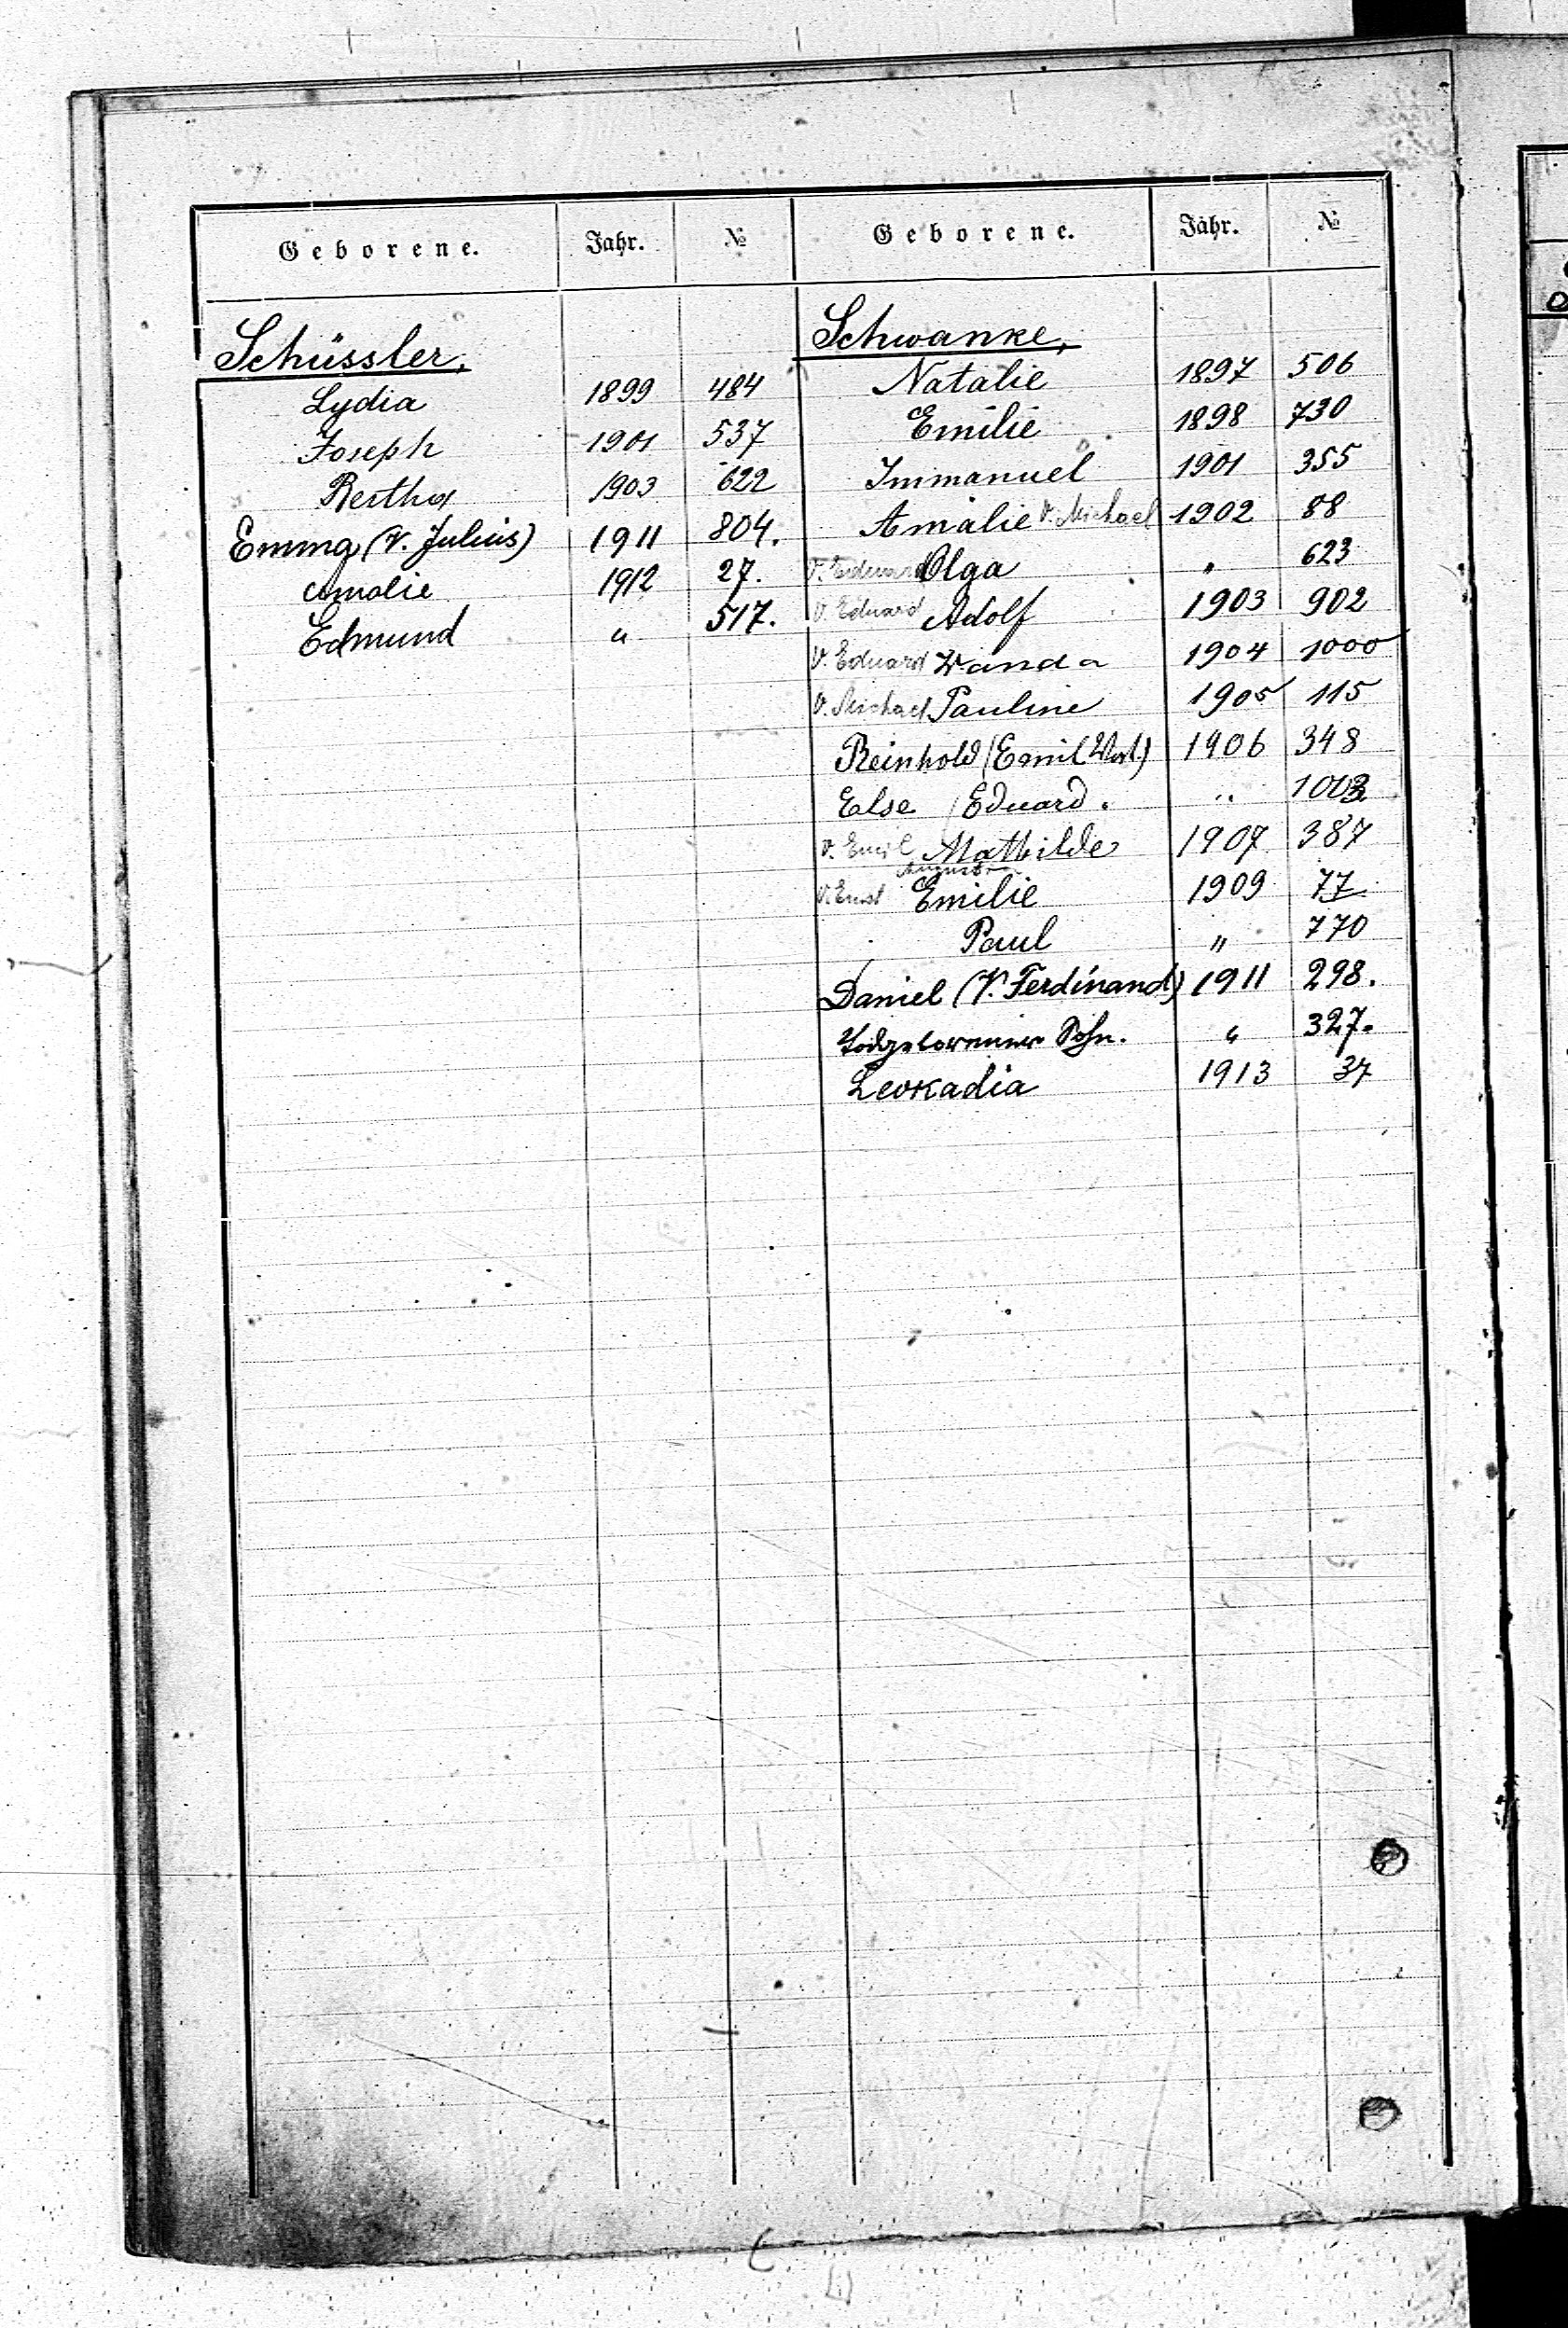 Geborene. Jahr. № Geborene. Jahr. №
Schüssler,
Lydia 1899 484
Joseph 1901 537
Bertha 1903 622
Emma (V. Julius) 1911 804.
Amalie 1912 27.
Edmund " 517.
Schwanke,
Natalie 1897 506
Emilie 1898 730
Immanuel 1901 355
Amalie V. Michael 1902 88
V. Eduard Olga " 623
V. Eduard Adolf 1903 902
V. Eduard Wanda 1904 1000
V. Michael Pauline 1905 115
Reinhold (Emil 1906 348
Else (Eduard. " 1003
V. Emil Mathilde 1907 387
Auguste
V. Ernst Emilie 1909 77
Paul " 770
Daniel (V. Ferdinand) 1911 298.
Todgeborener Sohn. " 327.
Leokadia 1913 37